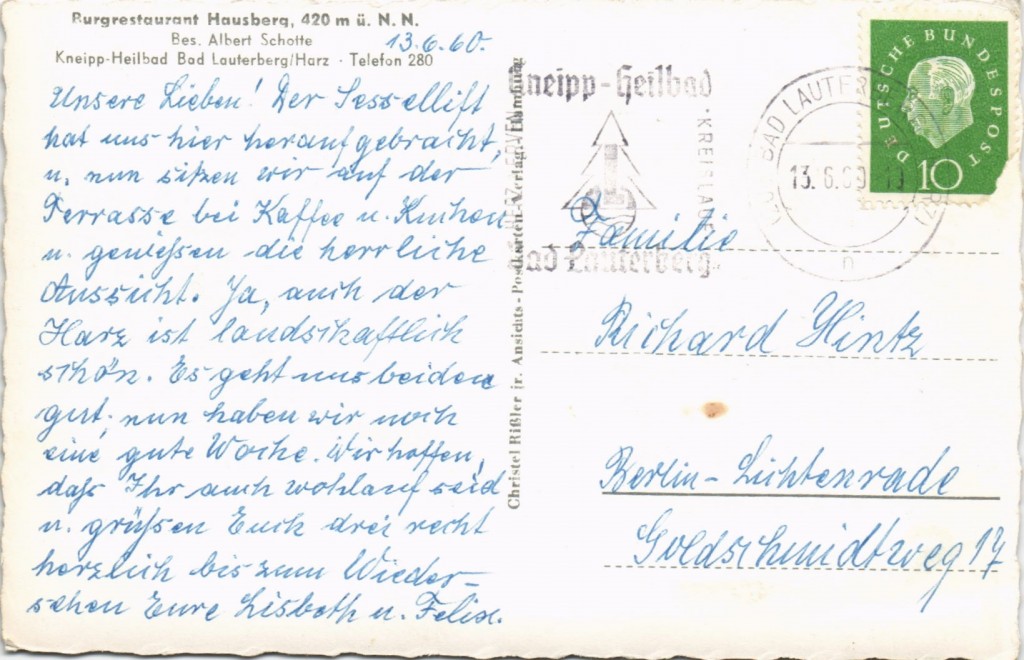 Burgrestaurant Hausberg, 420 m ü. N. N.
Bes. Albert Schotte
Kneipp-Heilbad Bad Lauterberg/Harz · Telefon 280
13.6.60.
Unsere Lieben! Der Sessellift
hat uns hier heraufgebracht,
u. nun sitzen wir auf der
Terrasse bei Kaffee u. Kuchen
u. geniessen die herrliche
Aussicht. Ja, auch der
Harz ist landschaftlich
schön. Es geht uns beiden
gut, nun haben wir noch
eine gute Woche. Wir hoffen,
daß Ihr auch wohlauf seid
u. grüßen Euch drei recht
herzlich bis zum Wieder-
sehen Eure Lisbeth u. Felix.
Christel Rißler jr. Ansichts-Postkarten-Verlag
Kneipp-Heilbad
Bad Lauterberg
KREIS
BAD LAUTER
13. 6. 60
n
DEUTSCHE BUNDESPOST
10
Familie
Richard Hintz
Berlin-Lichtenrade
Goldschmidtweg 17